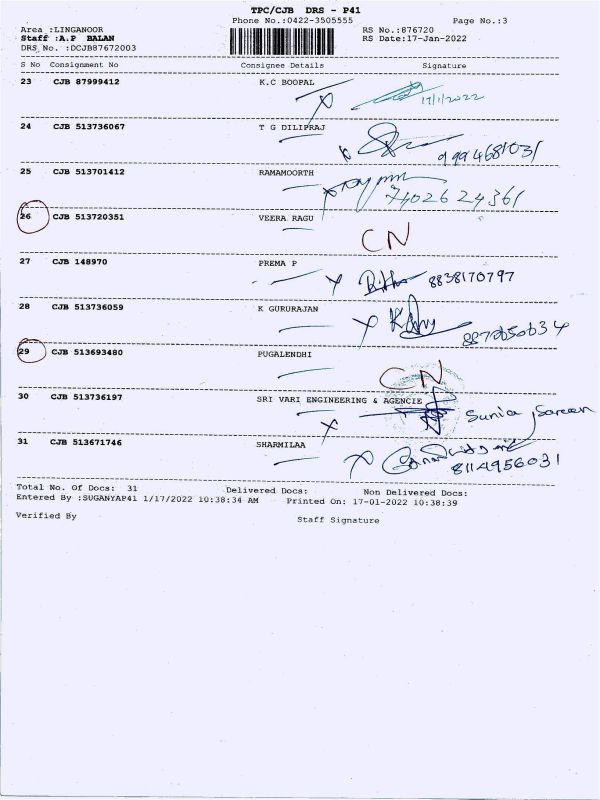 TPC/CJB DRS - P41
Phone No.:0422-3505555 Page No.:3
Area :LINGANOOR RS No.:876720
Staff :A.P BALAN RS Date:17-Jan-2022
DRS No. :DCJB87672003
S No Consignment No Consignee Details Signature
23 CJB 87999412 K.C BOOPAL
17/1/2022
24 CJB 513736067 T G DILIPRAJ
9994681031
25 CJB 513701412 RAMAMOORTH
7402624361
26 CJB 513720351 VEERA RAGU
CN
27 CJB 148970 PREMA P
8838170797
28 CJB 513736059 K GURURAJAN
29 CJB 513693480 PUGALENDHI
CN
30 CJB 513736197 SRI VARI ENGINEERING & AGENCIE
31 CJB 513671746 SHARMILAA
8114956031
Total No. Of Docs: 31 Delivered Docs: Non Delivered Docs:
Entered By :SUGANYAP41 1/17/2022 10:38:34 AM Printed On: 17-01-2022 10:38:39
Verified By Staff Signature